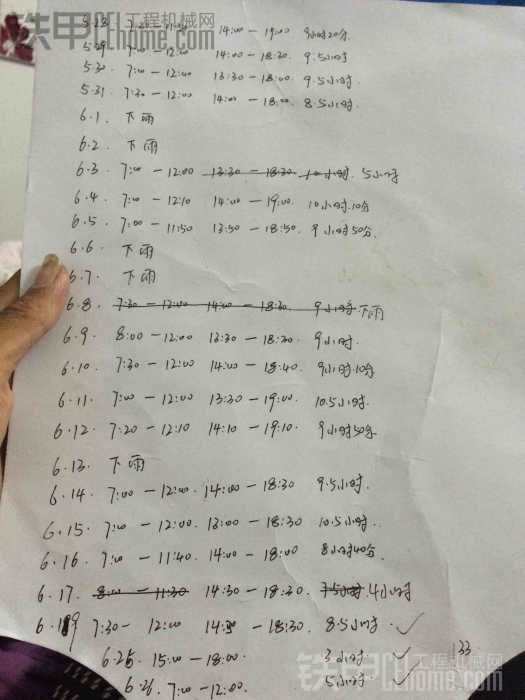 铁甲 工程机械网
cehome.com
14:00 - 19:00 9小时20分
5.29 7:00 - 12:00 14:00 - 18:30 9.5小时
5.30. 7:00 - 12:00 13:30 - 18:00. 9.5小时.
5.31. 7:30 - 12:00 14:00 - 18:00. 8.5小时.
6.1. 下雨
6.2. 下雨
6.3. 7:00 - 12:00 13:30 - 18:30 10小时. 5小时
6.4. 7:00 - 12:10 14:00 - 19:00. 10小时.10分
6.5. 7:00 - 11:50 13:50 - 18:50. 9小时50分.
6.6 下雨
6.7. 下雨
6.8. 7:30 - 12:00 14:00 - 18:30. 9小时 下雨
6.9. 8:00 - 12:00 13:30 - 18:30. 9小时.
6.10. 7:30 - 12:00 14:00 - 18:40. 9小时.10分
6.11. 7:00 - 12:00 13:30 - 19:00. 10.5小时.
6.12. 7:20 - 12:10 14:10 - 19:10. 9小时50分
6.13. 下雨
6.14. 7:00 - 12:00. 14:00 - 18:30 9.5小时.
6.15. 7:00 - 12:00. 13:00 - 18:30 10.5小时.
6.16. 7:00 - 11:40. 14:00 - 18:00 8小时40分.
6.17. 8:00 - 11:30 14:30 - 18:30. 7.5小时. 4小时
7:30 - 12:00 - 18:30. 8.5小时. ✓
6.25. 15:00 - 18:00. 3小时 ✓ 133
6.26. 7:00 - 12:00. 5小时. ✓
铁甲 工程机械网
cehome.com